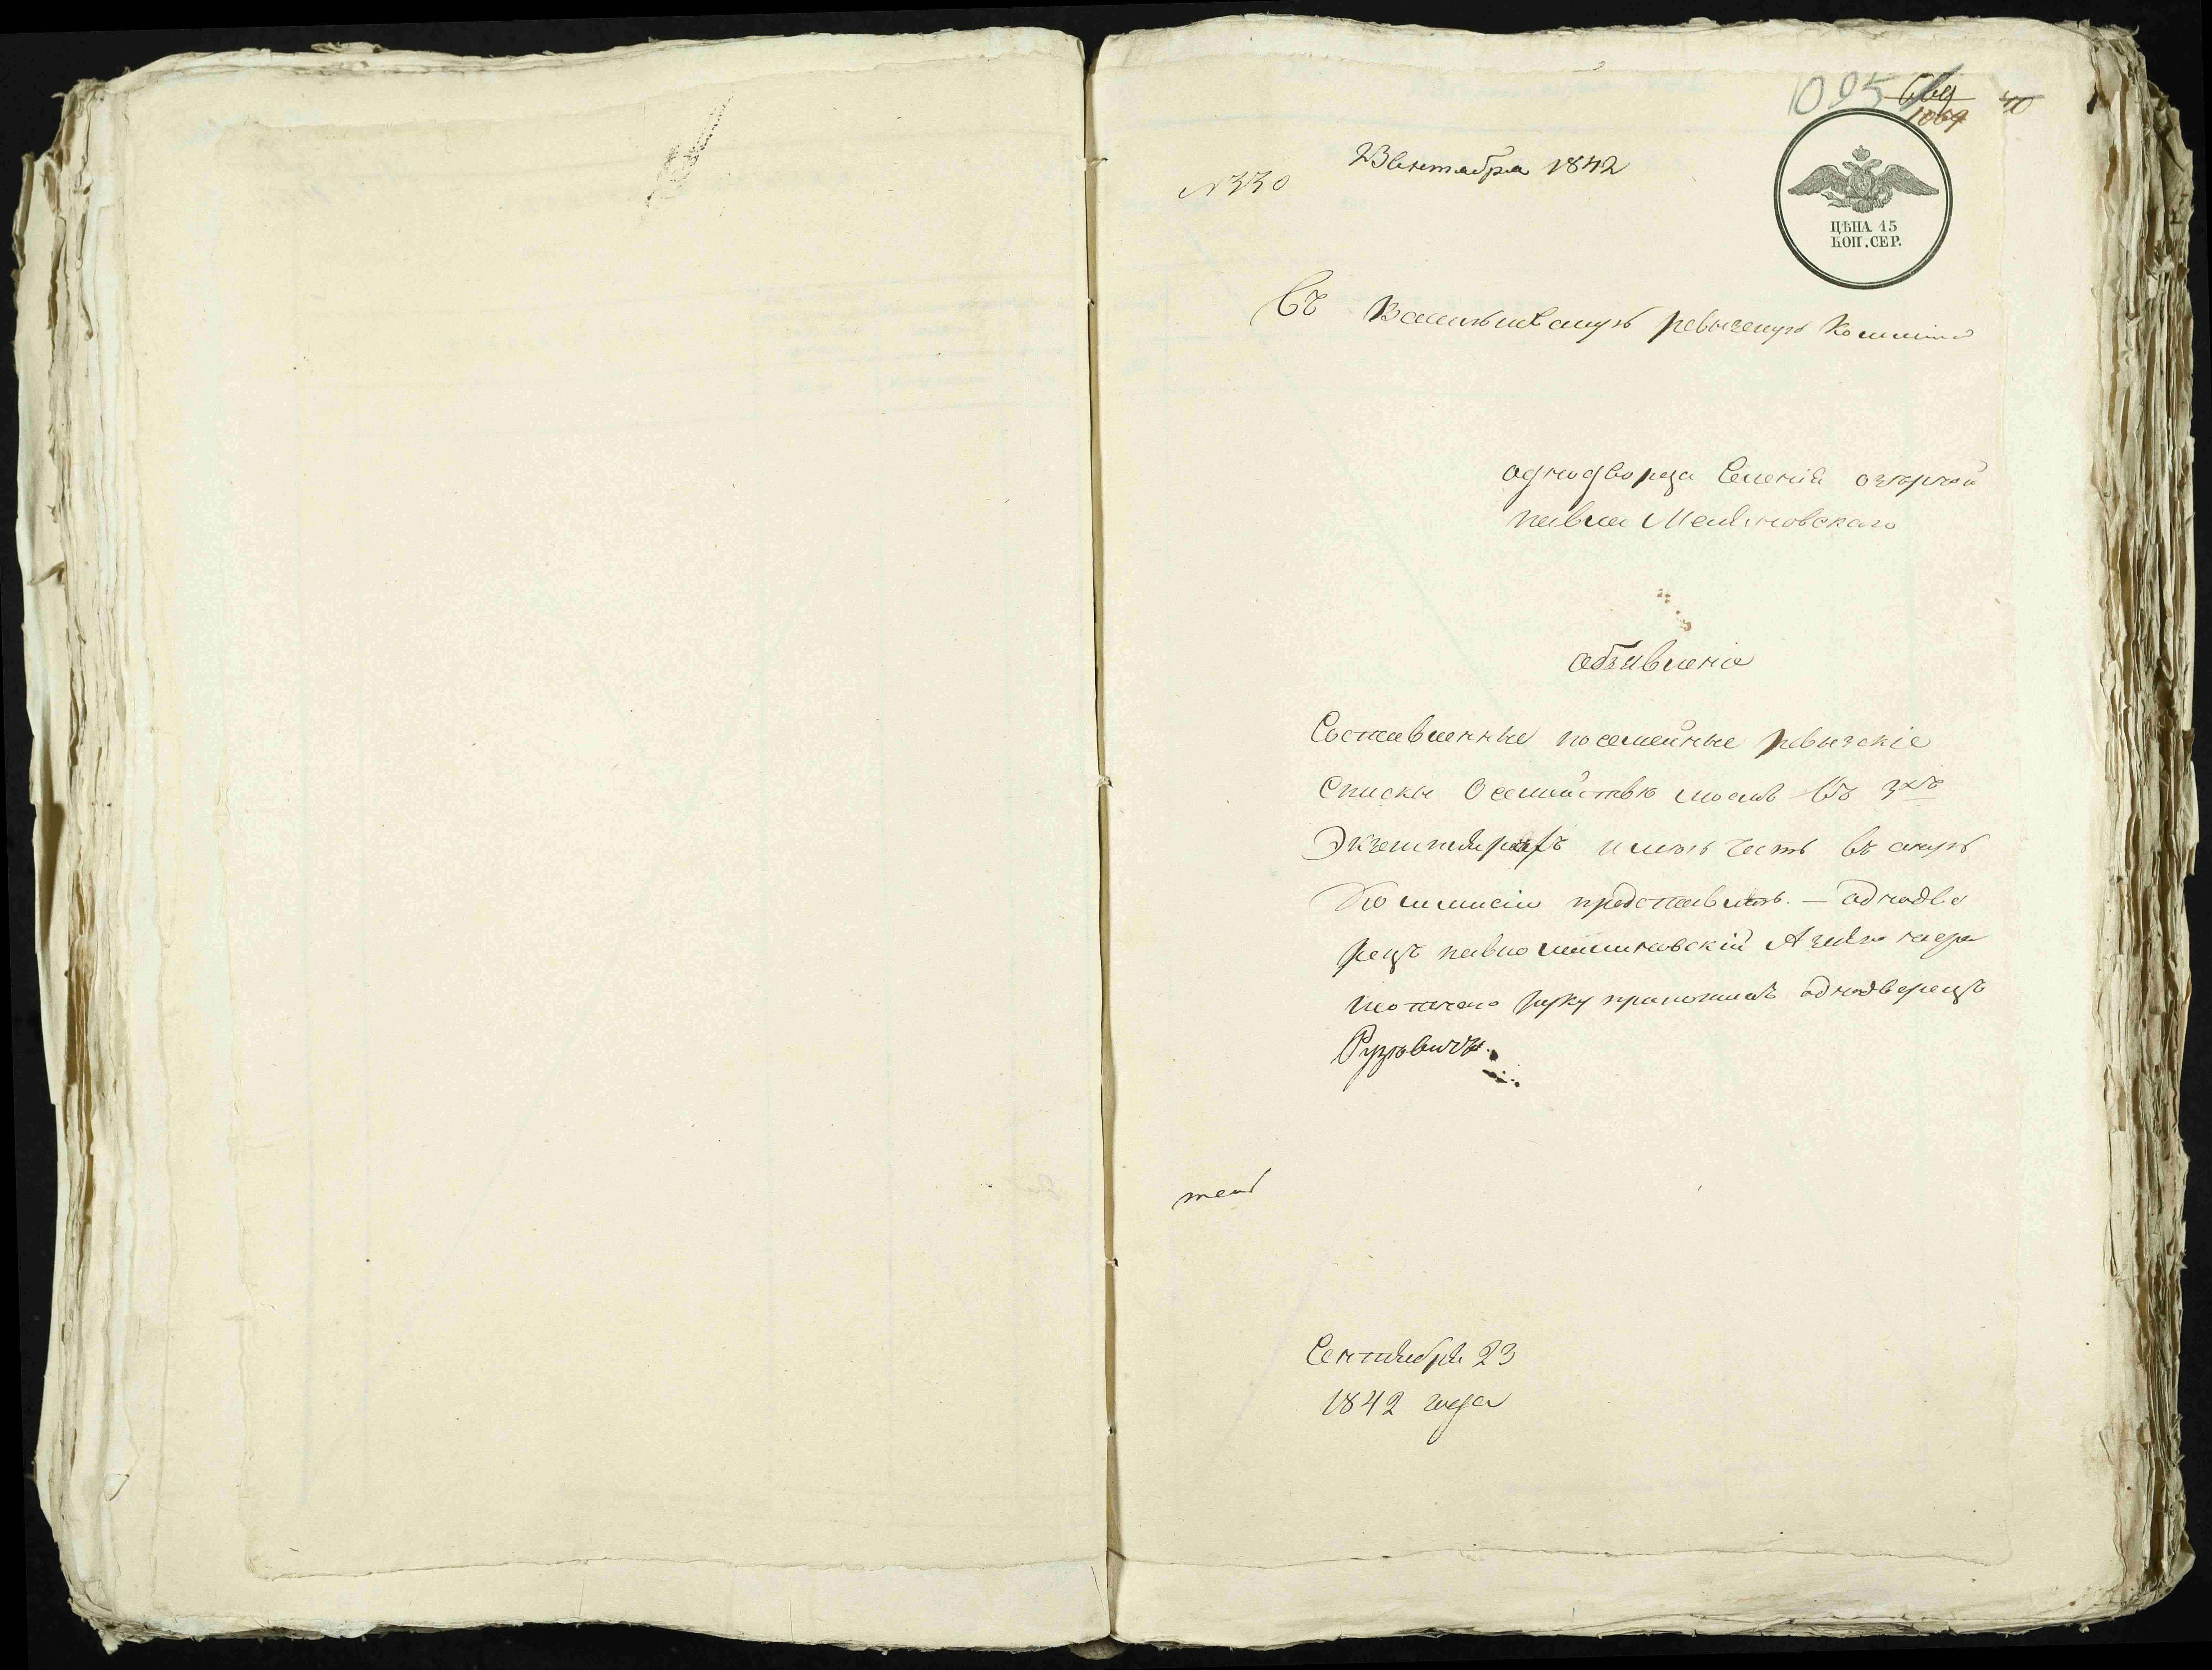 1095 669 40
1069
23 Сентабра 1842
N 330
ЦѢНА 15
КОП. СЕР.
Въ ревызскую Комисію
однодворца Селенія
павла Малиновскаго
объявленіе
Составленные посемейные ревызскіе
Списки О семействѣ моемъ Въ 3хъ
Экземплярахъ имѣю честь въ оную
Коммисію представить. — однодво
рецъ павло малиновскій А за него негра
мотного руку приложилъ однодворецъ
Сентября 23
1842 года